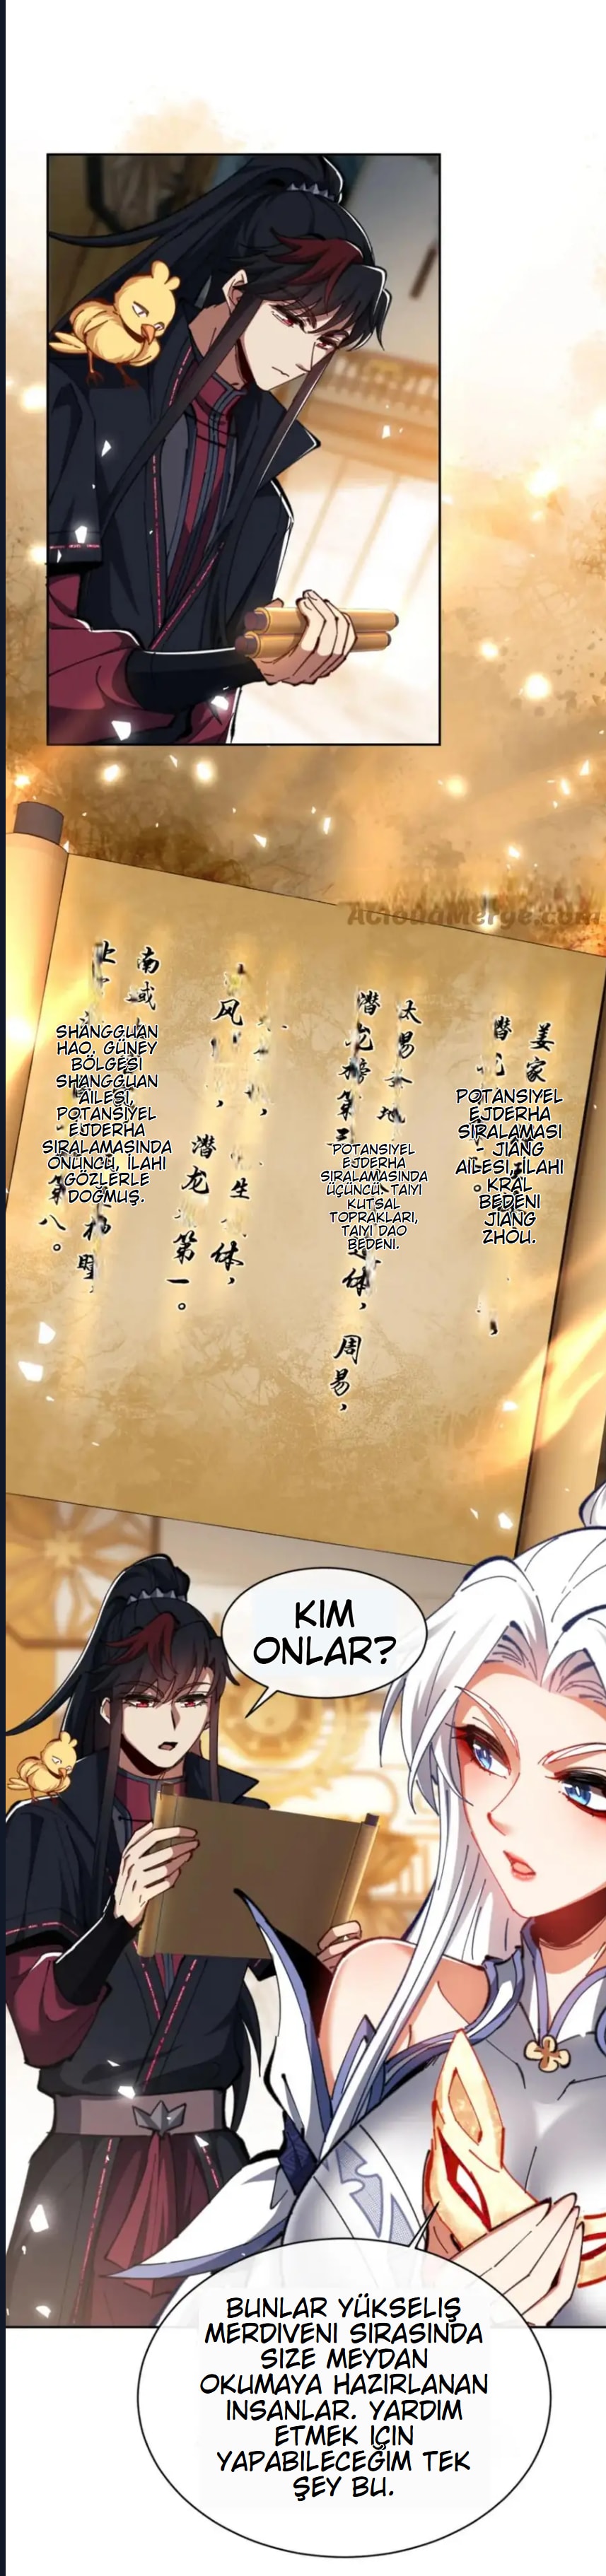 ACloudMerge.com
南域
上
SHANGGUAN
HAO, GÜNEY
BÖLGESİ
SHANGGUAN
AİLESİ,
POTANSİYEL
EJDERHA
SIRALAMASINDA
ONUNCU, İLAHİ
GÖZLERLE
DOĞMUŞ.
八。
风
潜龙
生
体，
第一。
太易
地
潜龙榜第三
POTANSIYEL
EJDERHA
SIRALAMASINDA
ÜÇÜNCÜ. TAIYI
KUTSAL
TOPRAKLARI,
TAIYI DAO
BEDENI.
体，
周易，
姜家
潜
POTANSIYEL
EJDERHA
SIRALAMASI
- JIANG
AILESI, ILAHI
KRAL
BEDENI
JIANG
ZHOU.
KIM
ONLAR?
BUNLAR YÜKSELIŞ
MERDIVENI SIRASINDA
SIZE MEYDAN
OKUMAYA HAZIRLANAN
INSANLAR. YARDIM
ETMEK IÇIN
YAPABILECEĞIM TEK
ŞEY BU.